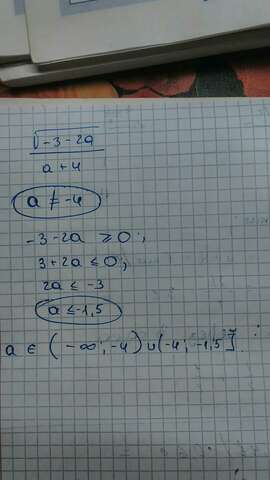 √-3-2a
a+4
a ≠ -4
-3-2a ≥0;
3+2a ≤0;
2a ≤ -3
a ≤ -1,5
a ∈ (-∞; -4) ∪ (-4; -1,5]